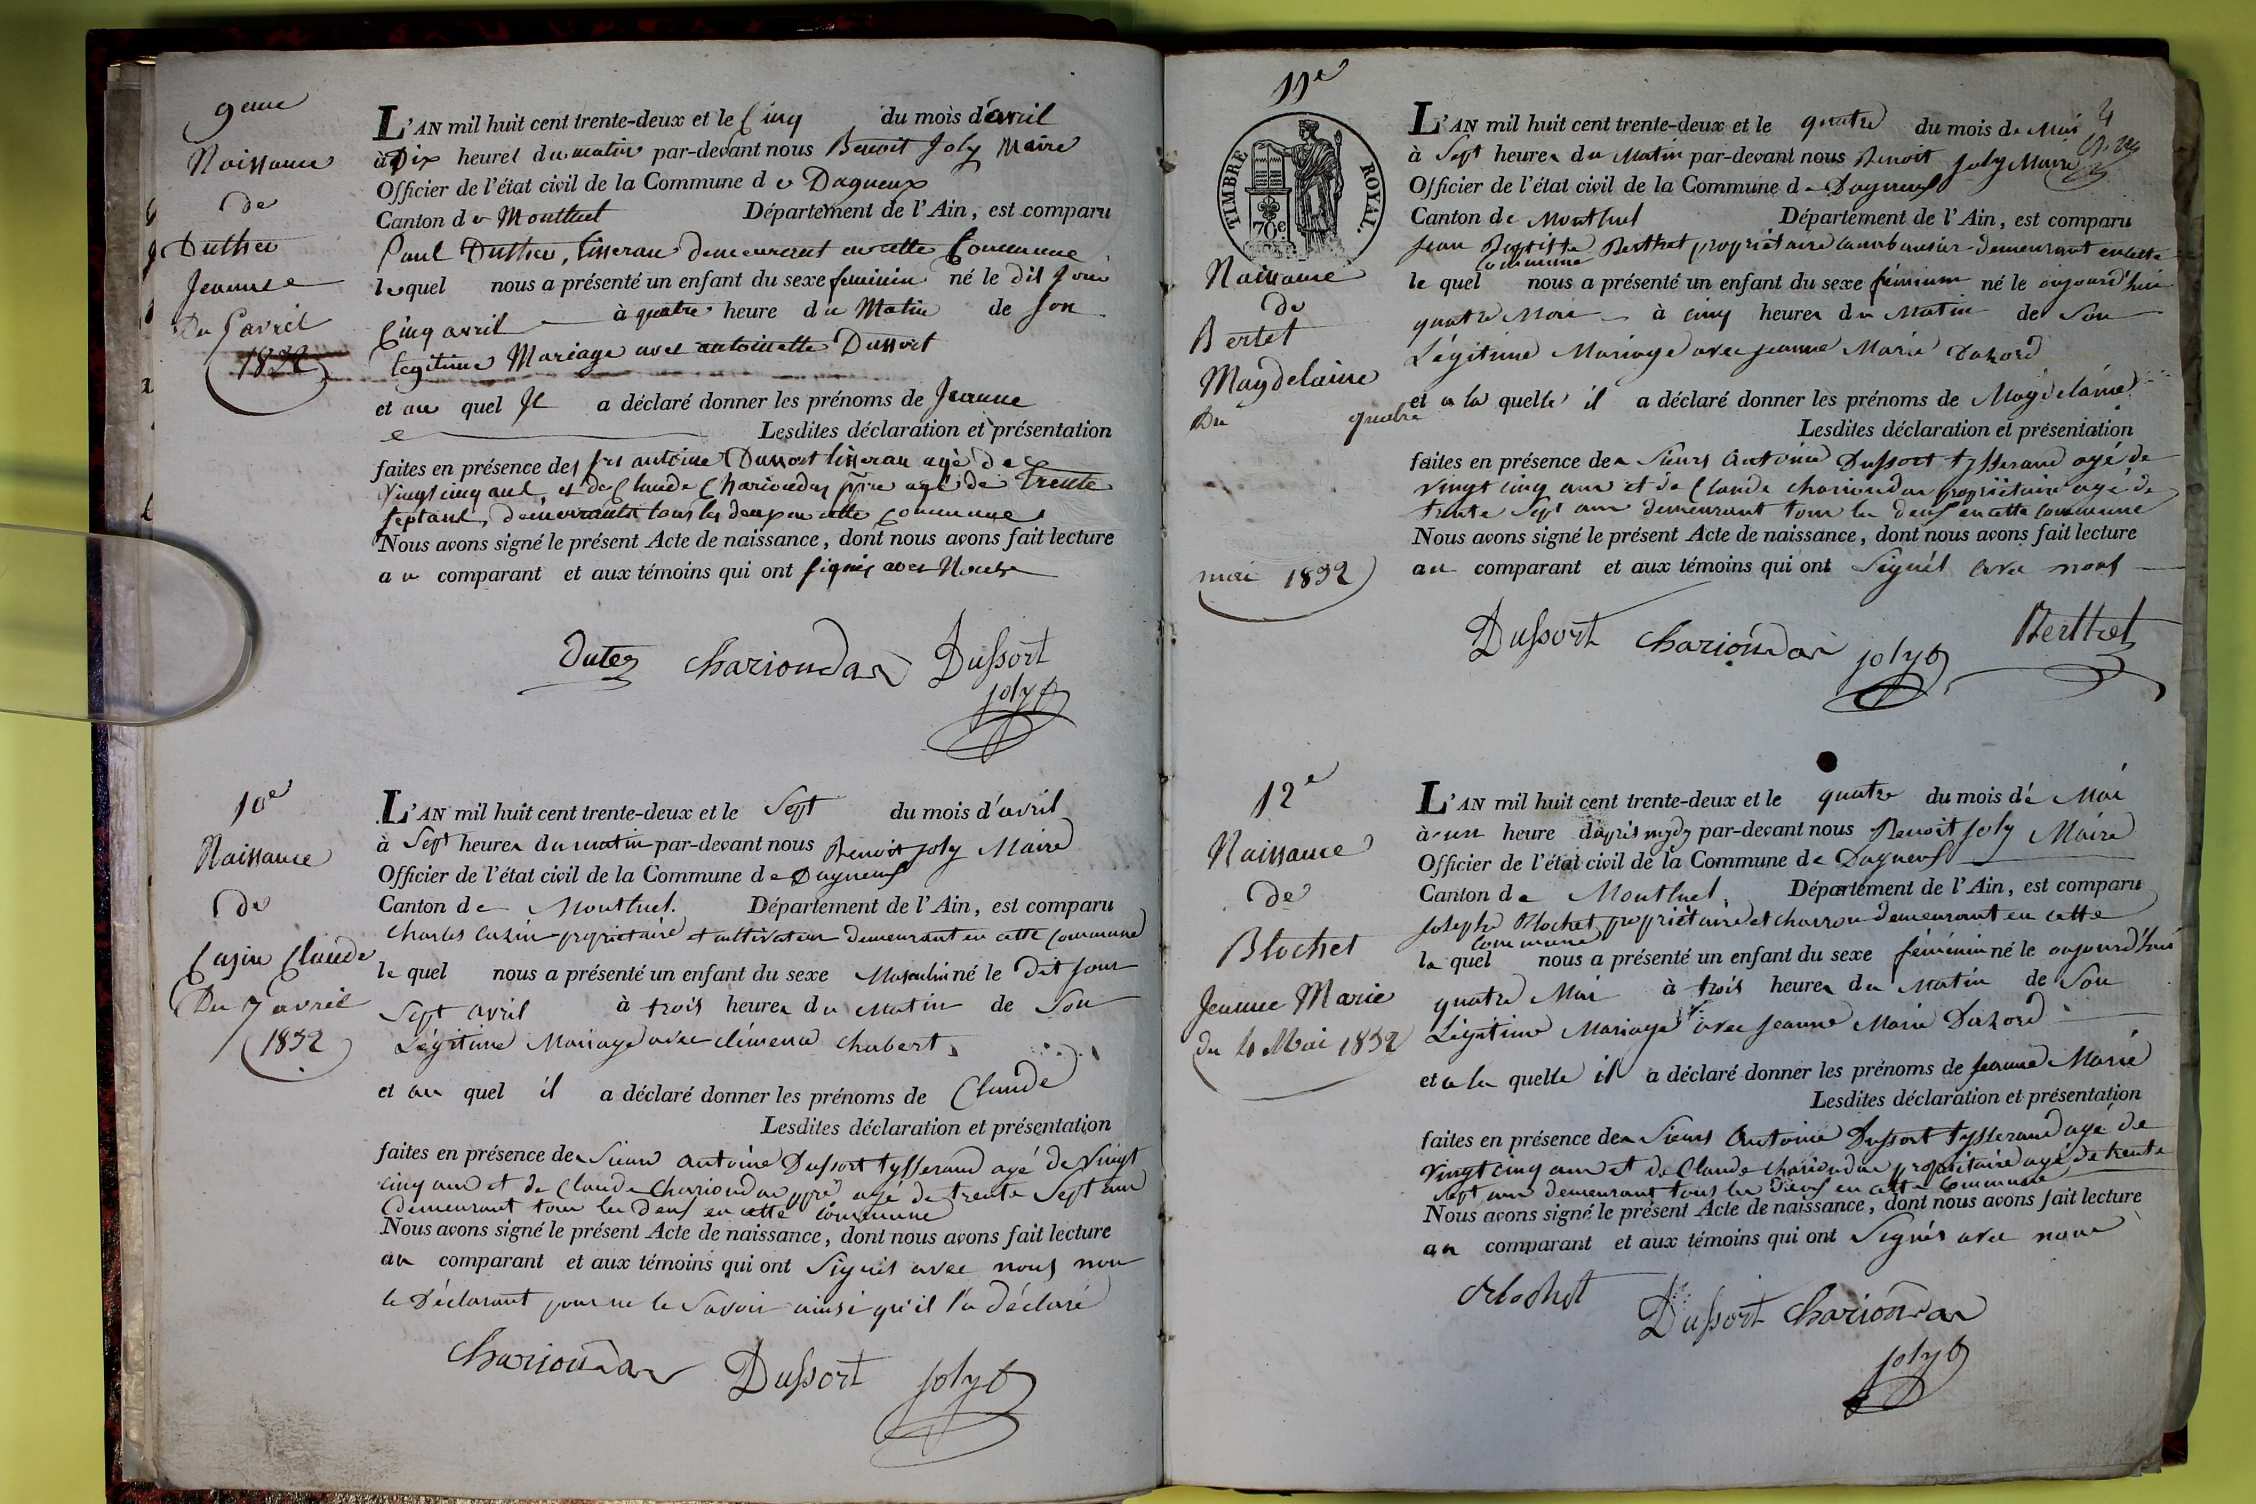 9eme
Naissance
de
Duthier
Jeanne
Du 5 avril
1832
L'AN mil huit cent trente-deux et le Cinq du mois d'avril
à Dix heures du matin par-devant nous Benoit Joly Maire
Officier de l'état civil de la Commune de Dagneux
Canton de Montluel Département de l'Ain, est comparu
Paul Duthier, tisseran demeurant en cette Commune
lequel nous a présenté un enfant du sexe feminin né le dit jour
Cinq avril à quatre heure du Matin de son
legitime Mariage avec antoinette Dussort
et au quel Il a déclaré donner les prénoms de Jeanne
Lesdites déclaration et présentation
faites en présence des srs antoine Dussort tisseran agé de
vingt cinq ans, et de Claude Charioudas ppre agé de trente
sept ans, demeurants tous les deux en cette commune
Nous avons signé le présent Acte de naissance, dont nous avons fait lecture
au comparant et aux témoins qui ont signés avec Nous
Dutez Charioudas Dussort
joly
10e
Naissance
de
Cazin Claude
Du 7 avril
1832
L'AN mil huit cent trente-deux et le Sept du mois d'avril
à Sept heures du matin par-devant nous Benoit Joly Maire
Officier de l'état civil de la Commune de Dagneux
Canton de Montluel. Département de l'Ain, est comparu
Charles Cazin propriétaire et cultivateur demeurant en cette Commune
le quel nous a présenté un enfant du sexe Masculin né le Dit jour
Sept avril à trois heures du Matin de Son
Légitime Mariage avec clémence Chabert
et au quel il a déclaré donner les prénoms de Claude
Lesdites déclaration et présentation
faites en présence des Sieurs Antoine Dussort tysserand agé de vingt
cinq ans et de Claude Charioudas ppre agé de trente Sept ans
demeurant tous les deux en cette commune
Nous avons signé le présent Acte de naissance, dont nous avons fait lecture
au comparant et aux témoins qui ont Signés avec nous non
le Déclarant pour ne le Savoir ainsi qu'il l'a déclaré
Charioudas Dussort joly
11e
TIMBRE ROYAL.
70c
Naissance
de
Bertet
Magdelaine
Du quatre
mai 1832
L'AN mil huit cent trente-deux et le quatre du mois de Mai
à Sept heures du Matin par-devant nous Benoit Joly Maire
Officier de l'état civil de la Commune de Dagneux
Canton de Montluel Département de l'Ain, est comparu
Jean Baptiste Berthet propriétaire demeurant en cette
Commune
le quel nous a présenté un enfant du sexe féminin né le aujourd'hui
quatre Mai à cinq heures du Matin de Son
Légitime Mariage avec Jeanne Marie Dazord
et a la quelle il a déclaré donner les prénoms de Magdelaine
Lesdites déclaration et présentation
faites en présence des Sieurs Antoine Dussort tysserand agé de
vingt cinq ans et de Claude Charioudas propriétaire agé de
trente Sept ans demeurant tous les deux en cette commune
Nous avons signé le présent Acte de naissance, dont nous avons fait lecture
au comparant et aux témoins qui ont Signés avec nous
Dussort Charioudas joly Berthet
12e
Naissance
de
Blochet
Jeanne Marie
du 4 Mai 1832
L'AN mil huit cent trente-deux et le quatre du mois de Mai
à un heure d'après mydy par-devant nous Benoit Joly Maire
Officier de l'état civil de la Commune de Dagneux
Canton de Montluel. Département de l'Ain, est comparu
Joseph Blochet propriétaire et charron demeurant en cette
commune
le quel nous a présenté un enfant du sexe féminin né le aujourd'hui
quatre Mai à trois heures du Matin de Son
Légitime Mariage avec Jeanne Marie Dazord
et a la quelle il a déclaré donner les prénoms de Jeanne Marie
Lesdites déclaration et présentation
faites en présence des Sieurs Antoine Dussort tysserand agé de
vingt cinq ans et de Claude Charioudas propriétaire agé de trente
sept ans demeurant tous les deux en cette Commune
Nous avons signé le présent Acte de naissance, dont nous avons fait lecture
au comparant et aux témoins qui ont Signés avec nous
Blochet
Dussort Charioudas
joly